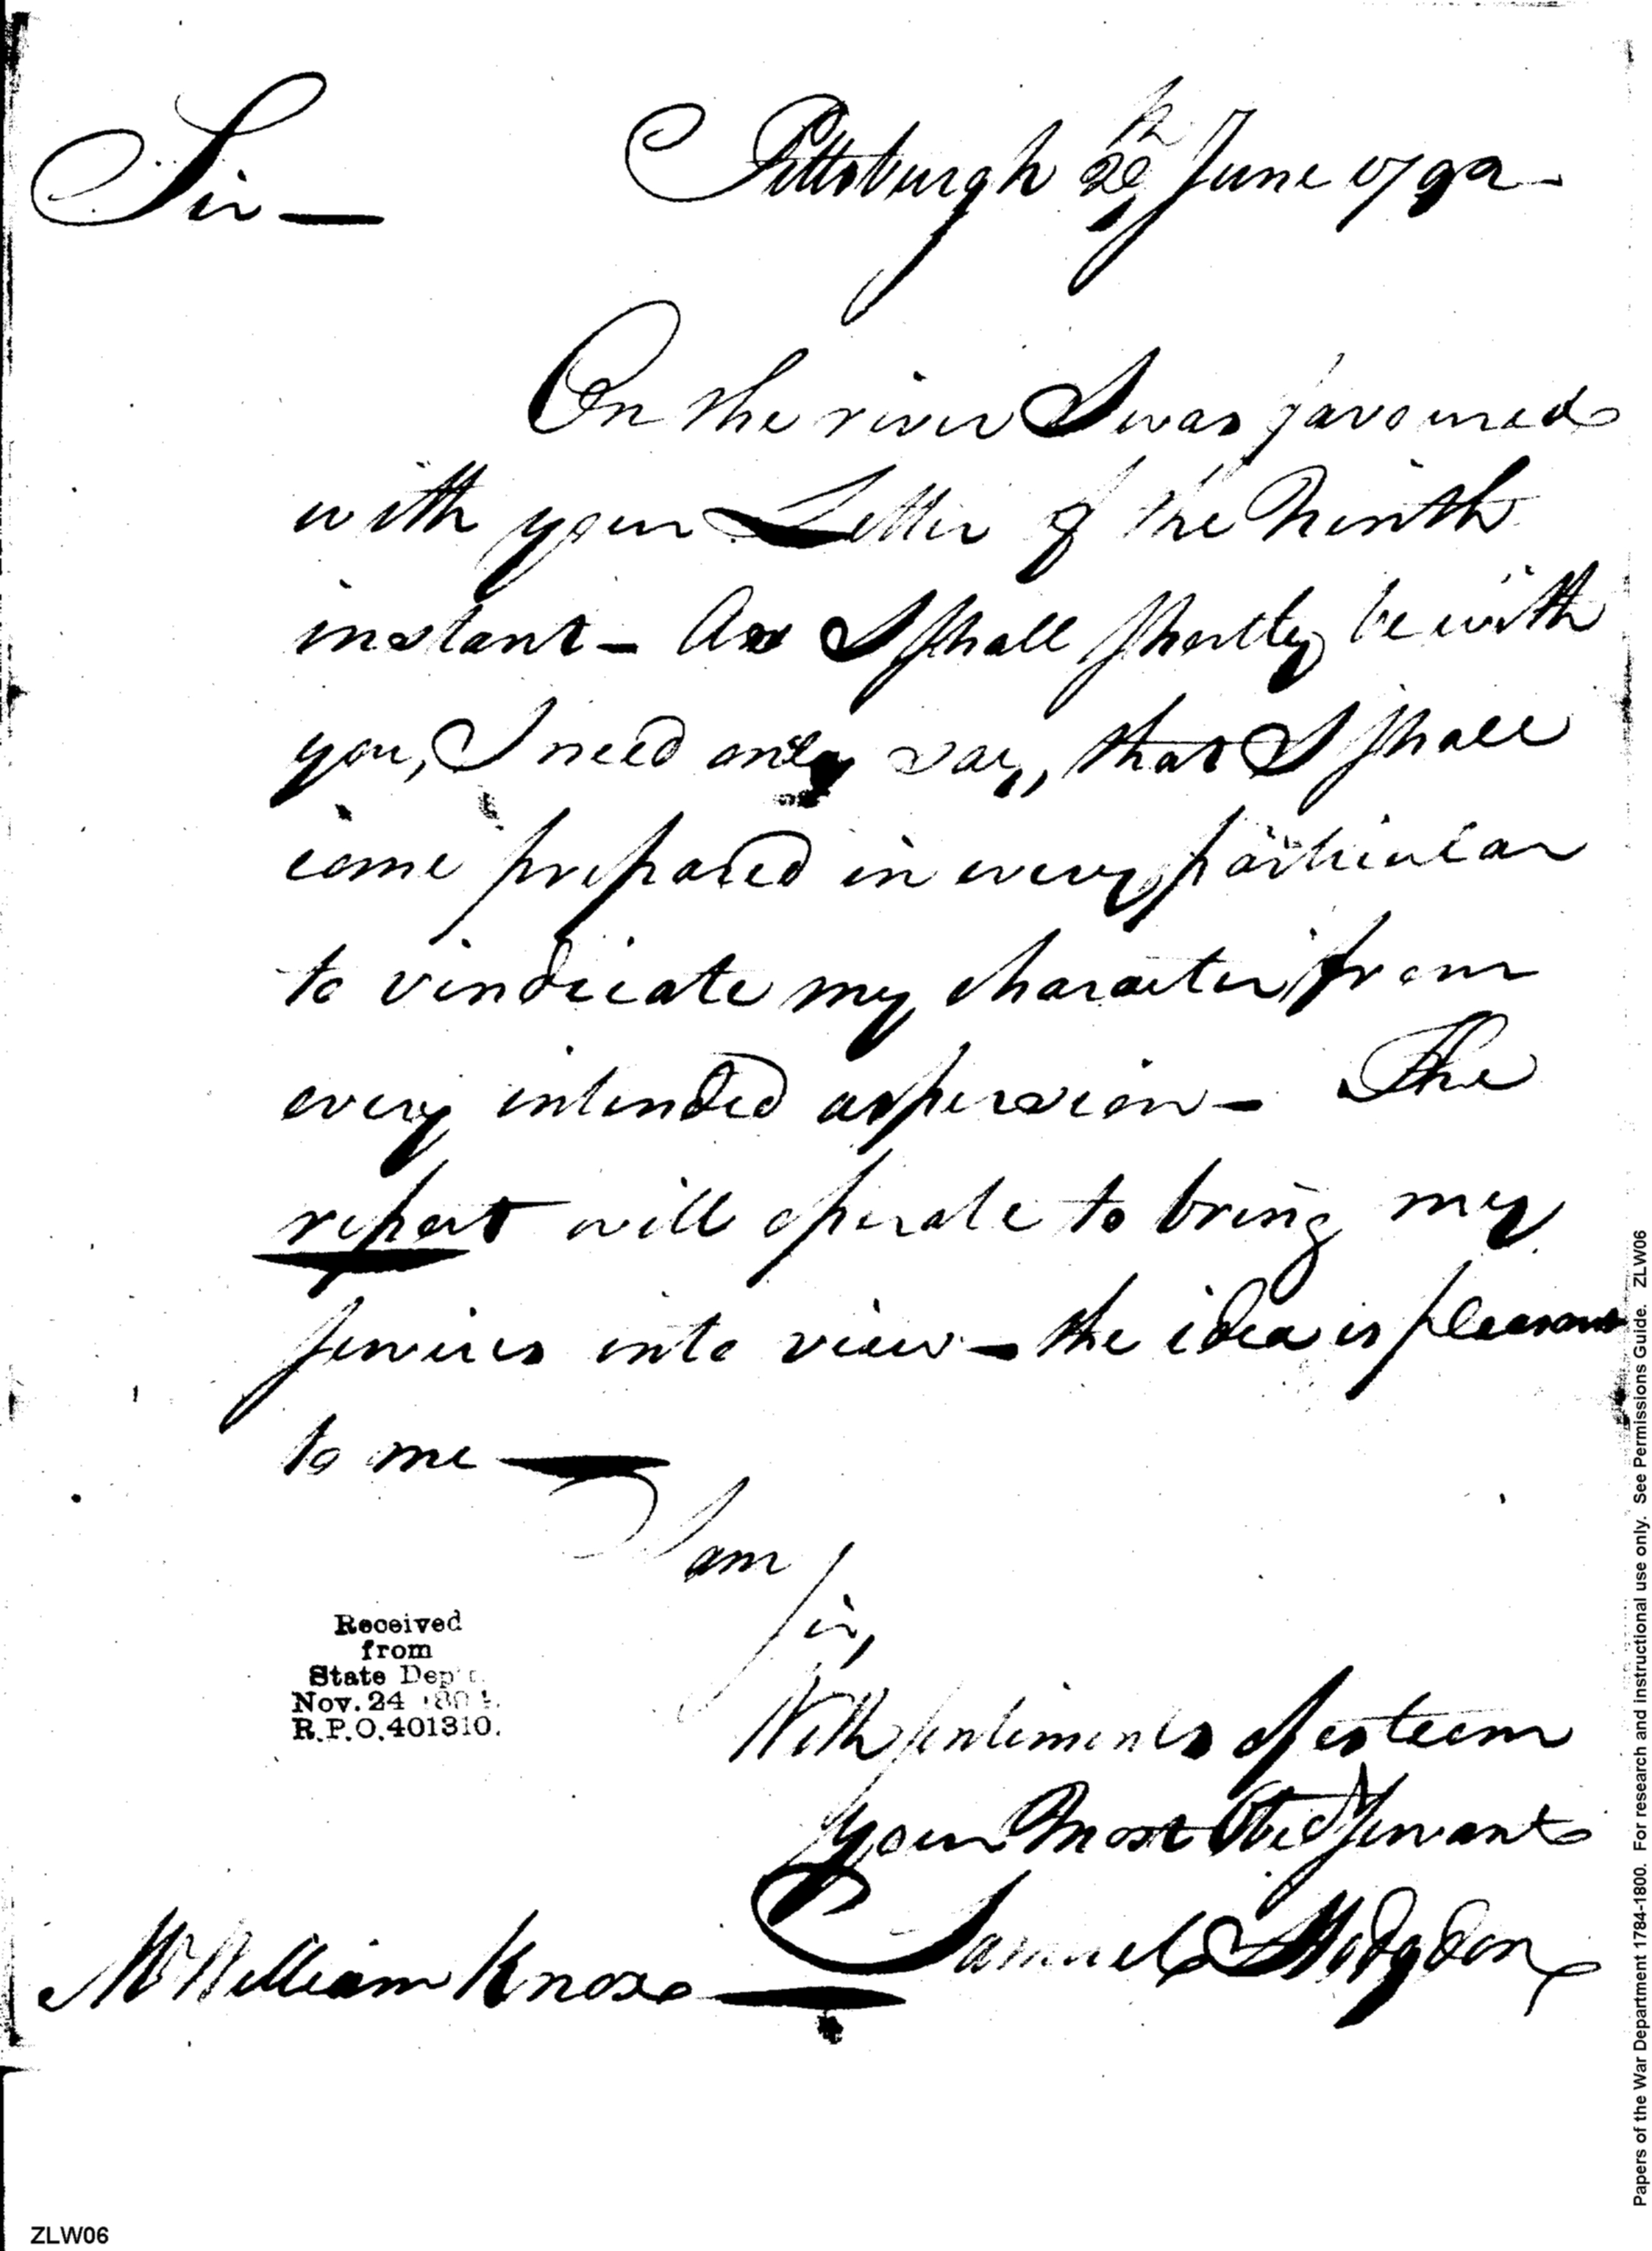 Sir —
Pittsburgh June 1792 -
On the river I was favoured
with your Letter of the Ninth
instant - As I shall shortly be with
you, I need only say, that I shall
come prepared in every particular
to vindicate my character from
every intended aspersion - The
report will operate to bring my
services into view - the idea is pleasant
to me —
I am
Sir,
With sentiments of esteem
your Most Obed Servant
Samuel Hodgdon
Mr William Knox —
Received
from
State Dep't.
Nov. 24
R.P.O. 401310.
ZLW06
Papers of the War Department 1784-1800. For research and instructional use only. See Permissions Guide. ZLW06